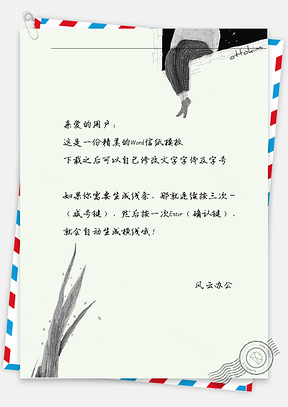 ottokim
亲爱的用户：
这是一份精美的Word信纸模板
下载之后可以自己修改文字字体及字号
如果你需要生成线条，那就连续按三次－
（减号键），然后按一次Enter（确认键），
就会自动生成横线哦！
风云办公